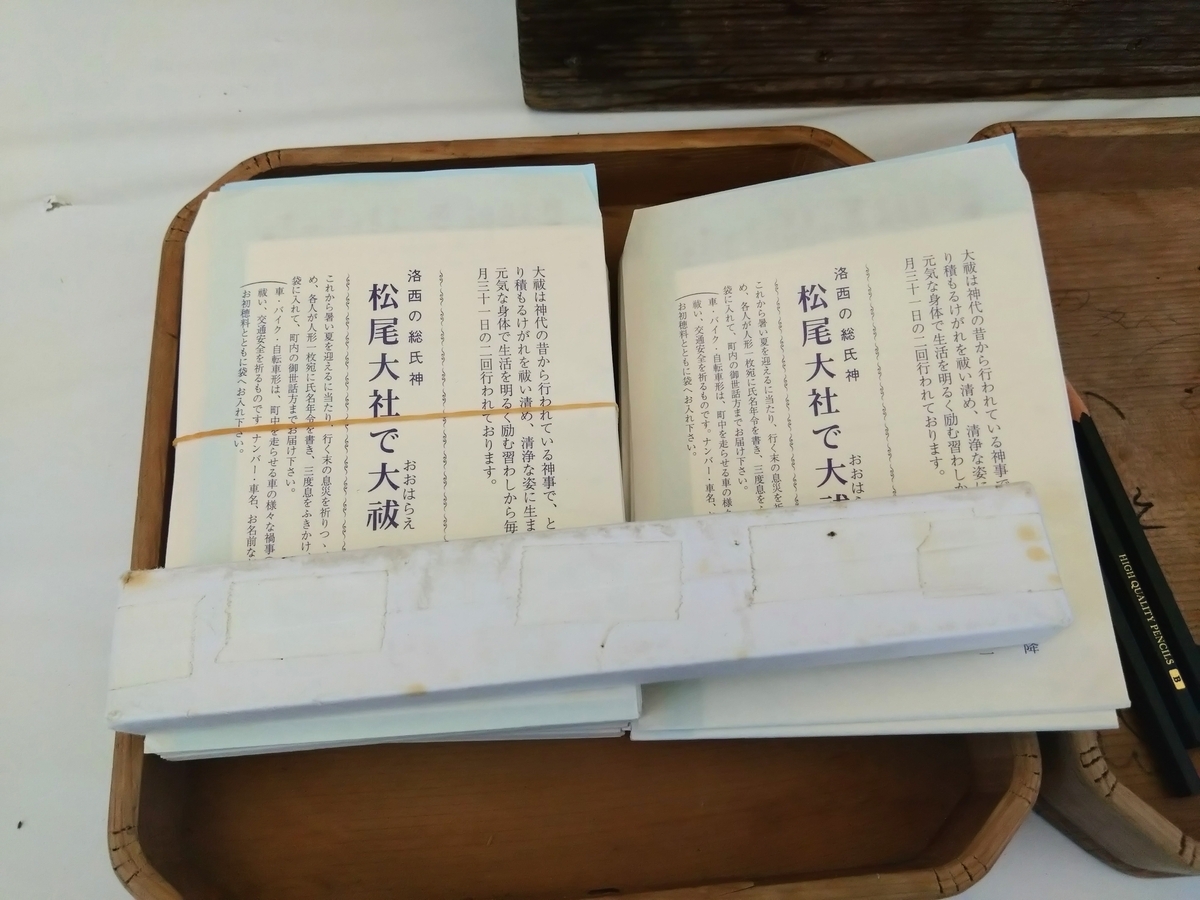 大祓は神代の昔から行われている神事で、と
り積もるけがれを祓い清め、清浄な姿に生ま
元気な身体で生活を明るく励む習わしから毎
月三十一日の二回行われております。
洛西の総氏神
松尾大社で大祓
おおはらえ
これから暑い夏を迎えるに当たり、行く末の息災を祈りつゝ、
め、各人が人形一枚宛に氏名年令を書き、三度息をふきかけ、
袋に入れて、町内の御世話方までお届け下さい。
車・バイク・自転車形は、町中を走らせる車の様々な禍事
祓い、交通安全を祈るものです。ナンバー・車名、お名前な
お初穂料とともに袋へお入れ下さい。
大祓は神代の昔から行われている神事で
り積もるけがれを祓い清め、清浄な姿に
元気な身体で生活を明るく励む習わしか
月三十一日の二回行われております。
洛西の総氏神
松尾大社で大祓
おおはら
これから暑い夏を迎えるに当たり、行く末の息災を祈
め、各人が人形一枚宛に氏名年令を書き、三度息を
袋に入れて、町内の御世話方までお届け下さい。
車・バイク・自転車形は、町中を走らせる車の
祓い、交通安全を祈るものです。ナンバー・車名、
お初穂料とともに袋へお入れ下さい。
降
HIGH QUALITY PENCILS B